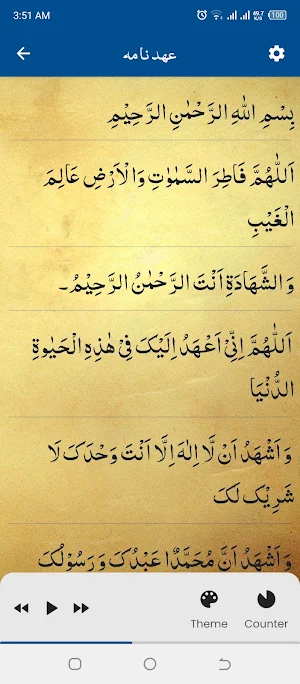 3:51 AM
49.7 K/s
100
عہد نامہ
بِسْمِ اللّٰهِ الرَّحْمٰنِ الرَّحِيْمِ
اَللّٰهُمَّ فَاطِرَ السَّمٰوٰتِ وَالْاَرْضِ عَالِمَ
الْغَيْبِ
وَالشَّهَادَةِ اَنْتَ الرَّحْمٰنُ الرَّحِيْمُ۔
اَللّٰهُمَّ اِنِّيْ اَعْهَدُ اِلَيْکَ فِيْ هٰذِهِ الْحَيٰوةِ
الدُّنْيَا
وَاَشْهَدُ اَنْ لَّا اِلٰهَ اِلَّا اَنْتَ وَحْدَکَ لَا
شَرِيْکَ لَکَ
وَاَشْهَدُ اَنَّ مُحَمَّدًا عَبْدُکَ وَرَسُوْلُکَ
Theme
Counter